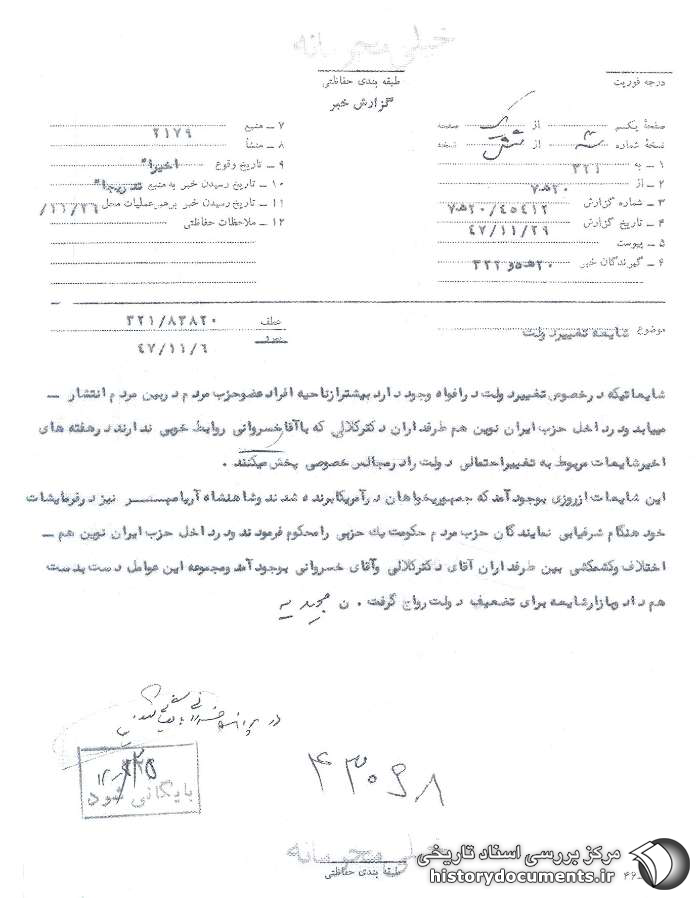 خیلی محرمانه
طبقه بندی حفاظتی
درجه فوریت
گزارش خبر
صفحهٔ یکم از یک صفحه
نسخهٔ شماره از شش نسخه
۱ – به ۳۲۱
۲ – از ۲۰ﻫ۷
۳ – شماره گزارش ۲۰/۴۵۴۱۲ﻫ۷
۴ – تاریخ گزارش ۴۷/۱۱/۲۹
۵ – پیوست
۶ – گیرندگان خبر
۷ – منبع ۲۱۷۹
۸ – منشأ
۹ – تاریخ وقوع اخیرا"
۱۰ – تاریخ رسیدن خبر به منبع تدریجا"
۱۱ – تاریخ رسیدن خبر برهبرعملیات محل ۱۱/۲۶/
۱۲ – ملاحظات حفاظتی
موضوع شایعه تغییردولت
عطف ۳۲۱/۸۳۸۲۰
۴۷/۱۱/۶
شایعاتیکه درخصوص تغییردولت درافواه وجود دارد بیشترازناحیه افرادعضوحزب مردم دربین مردم انتشار –
مییابد ودرداخل حزب ایران نوین هم طرفداران دکترکلالی که باآقاخسروانی روابط خوبی ندارند درهفته های
اخیرشایعات مربوط به تغییراحتمالی دولت رادرمجالس خصوصی پخش میکنند .
این شایعات ازروزی بوجودآمدکه جمهوریخواهان درآمریکابرنده شدند وشاهنشاه آریامهـر نیز درفرمایشات
خود هنگام شرفیابی نمایندگان حزب مردم حکومت یك حزبی رامحکوم فرمودند ودرداخل حزب ایران نوین هم –
اختلاف وکشمکشی بین طرفداران آقای دکترکلالی وآقای خسروانی بوجودآمد ومجموعه این عوامل دست بدست
هم داد وبازارشایعه برای تضعیف دولت رواج گرفت . ن
بایگانی شود
۴۳۰۶۸
خیلی محرمانه
طبقه بندی حفاظتی
مرکز بررسی اسناد تاریخی
historydocuments.ir